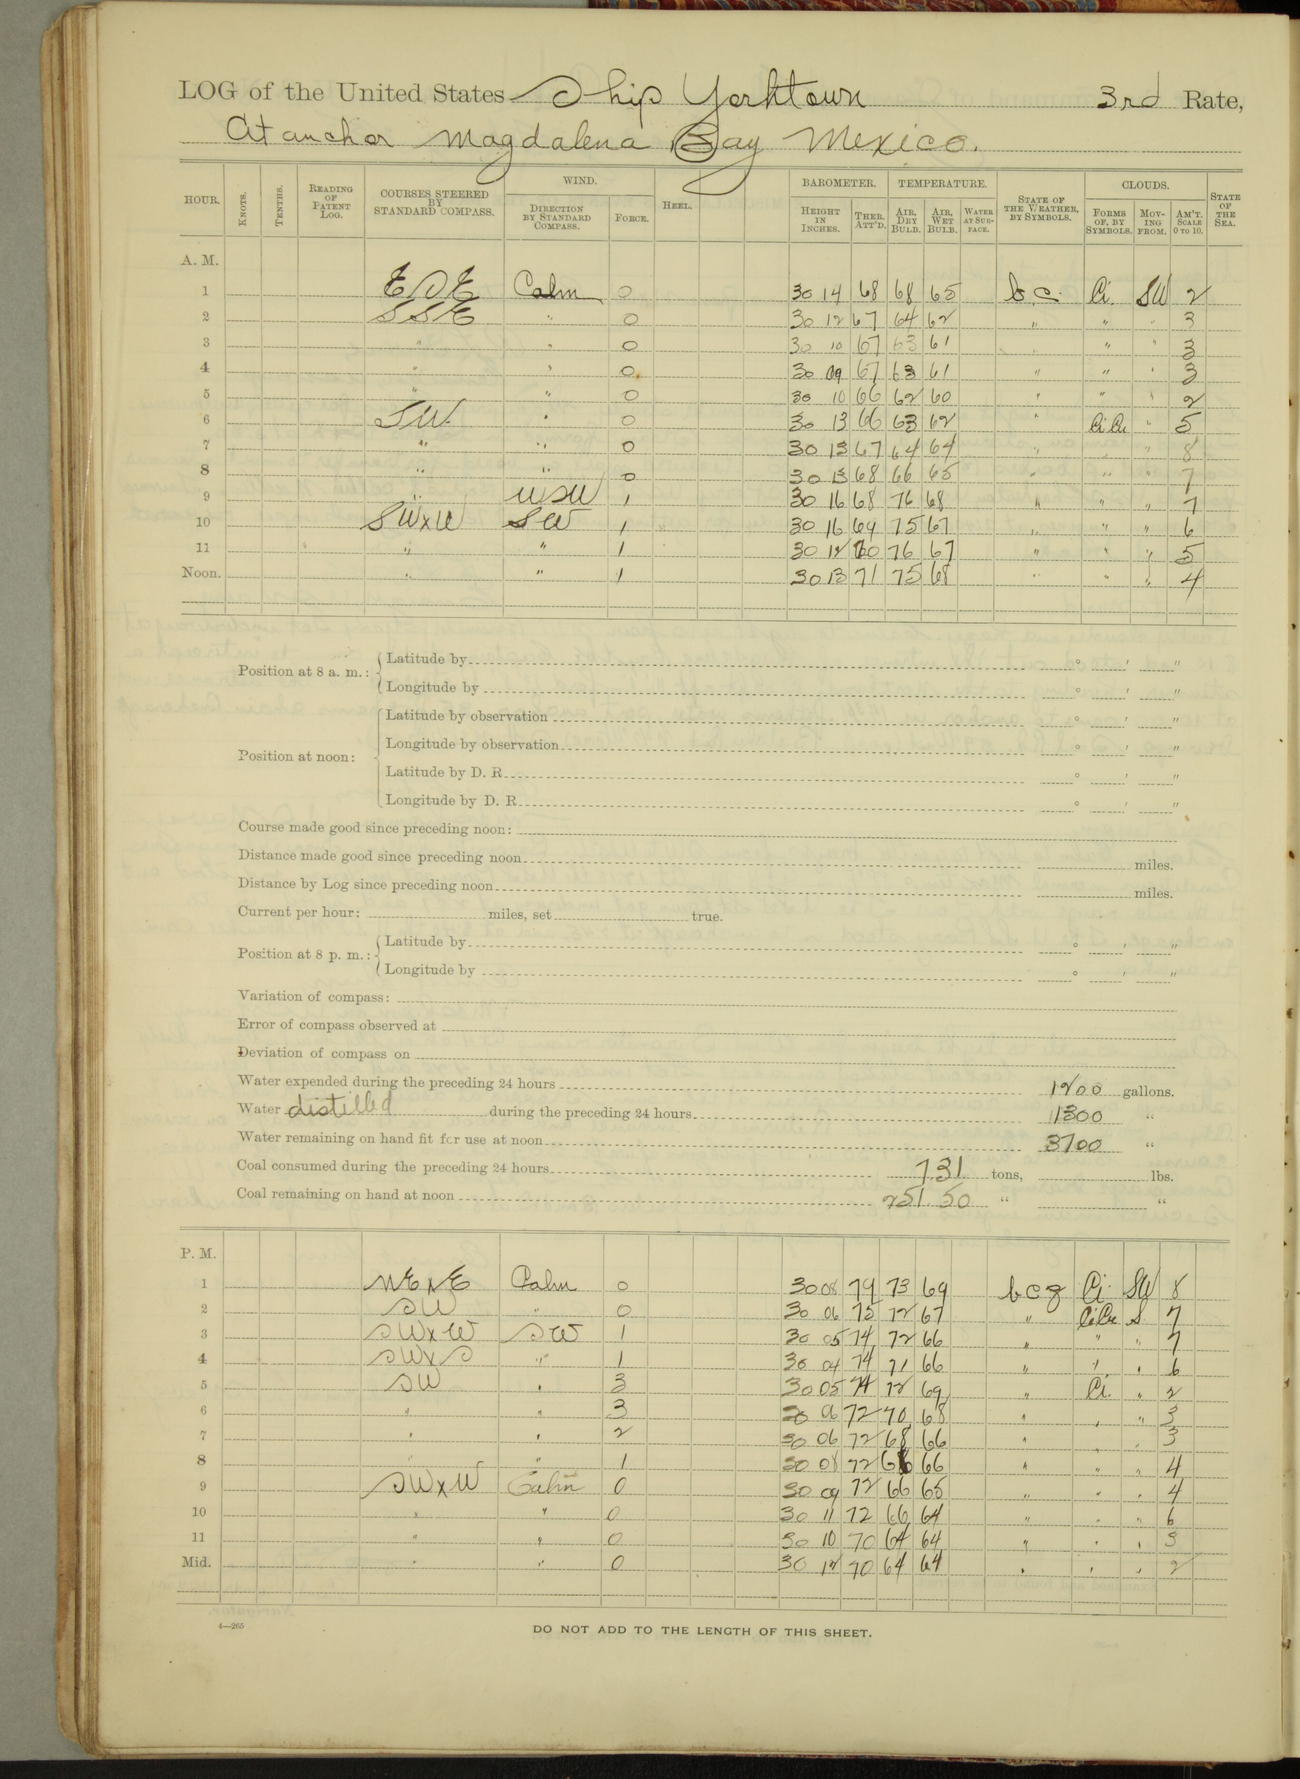 LOG of the United States Ship Yorktown 3rd Rate,
At anchor Magdalena Bay Mexico.
HOUR. KNOTS. TENTHS. READING OF PATENT LOG. COURSES STEERED BY STANDARD COMPASS. WIND. DIRECTION BY STANDARD COMPASS. FORCE. HEEL. BAROMETER. HEIGHT IN INCHES. THER. ATT'D. TEMPERATURE. AIR, DRY BULB. AIR, WET BULB. WATER AT SURFACE. STATE OF THE WEATHER, BY SYMBOLS. CLOUDS. FORMS OF, BY SYMBOLS. MOVING FROM. AM'T. SCALE 0 TO 10. STATE OF THE SEA.
A. M.
1 ESE Calm 0 30 14 68 68 65 b.c. Ci SW 2
2 SSE " 0 30 12 67 64 62 " " " 3
3 " " 0 30 10 67 63 61 " " 3
4 " " 0 30 09 67 63 61 " " " 3
5 " " 0 30 10 66 62 60 " " " 2
6 SW. " 0 30 13 66 63 62 " Ci.Cu " 5
7 " " 0 30 13 67 64 64 " " " 8
8 " " 0 30 13 68 66 65 " " " 7
9 " WSW 1 30 16 68 76 68 " " " 7
10 SWxW SW 1 30 16 69 75 67 " " " 6
11 " " 1 30 12 70 76 67 " " " 5
Noon. " " 1 30 13 71 75 68 " " " 4
Position at 8 a. m.: Latitude by ° ' "
Longitude by ° ' "
Position at noon: Latitude by observation ° ' "
Longitude by observation ° ' "
Latitude by D. R. ° ' "
Longitude by D. R. ° ' "
Course made good since preceding noon:
Distance made good since preceding noon miles.
Distance by Log since preceding noon miles.
Current per hour: miles, set true.
Position at 8 p. m.: Latitude by ° ' "
Longitude by ° ' "
Variation of compass:
Error of compass observed at
Deviation of compass on
Water expended during the preceding 24 hours 1200 gallons.
Water distilled during the preceding 24 hours 1300 "
Water remaining on hand fit for use at noon 3700 "
Coal consumed during the preceding 24 hours 7.31 tons, lbs.
Coal remaining on hand at noon 251.50 " "
P. M.
1 NExE Calm 0 30 08 79 73 69 b c z Ci SW 8
2 SW " 0 30 06 75 72 67 " CiCu S 7
3 SWxW SW 1 30 05 74 72 66 " " " 7
4 SWxS " 1 30 04 74 71 66 " " " 6
5 SW " 3 30 05 74 72 69 " Ci. " 2
6 " " 3 30 06 72 70 68 " " " 3
7 " " 2 30 06 72 68 66 " " " 3
8 " " 1 30 08 72 66 66 " " " 4
9 SWxW Calm 0 30 09 72 66 65 " " " 4
10 " " 0 30 11 72 66 64 " " " 6
11 " " 0 30 10 70 64 64 " " " 3
Mid. " " 0 30 12 70 64 64 " " " 2
4—265
DO NOT ADD TO THE LENGTH OF THIS SHEET.